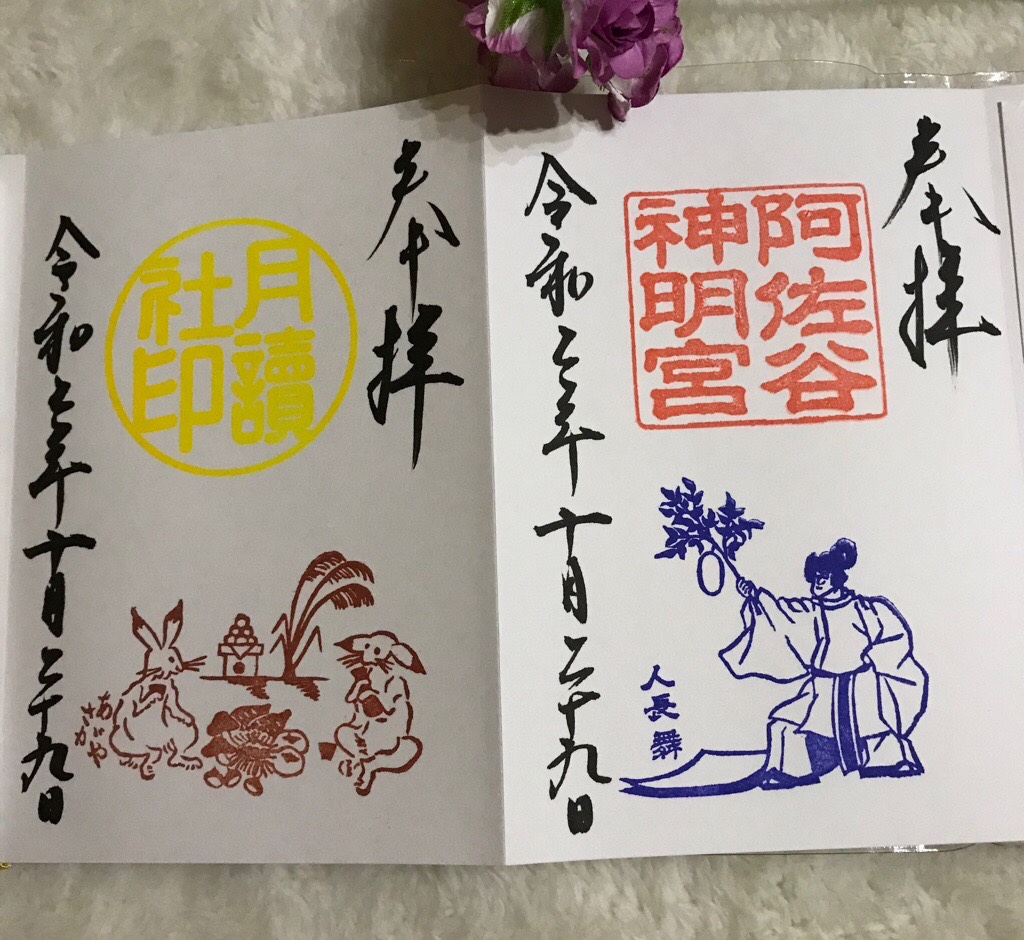 奉拝
阿佐谷
神明宮
人長舞
令和二年十月二十九日
奉拝
月讀
社印
あさがや
令和二年十月二十九日